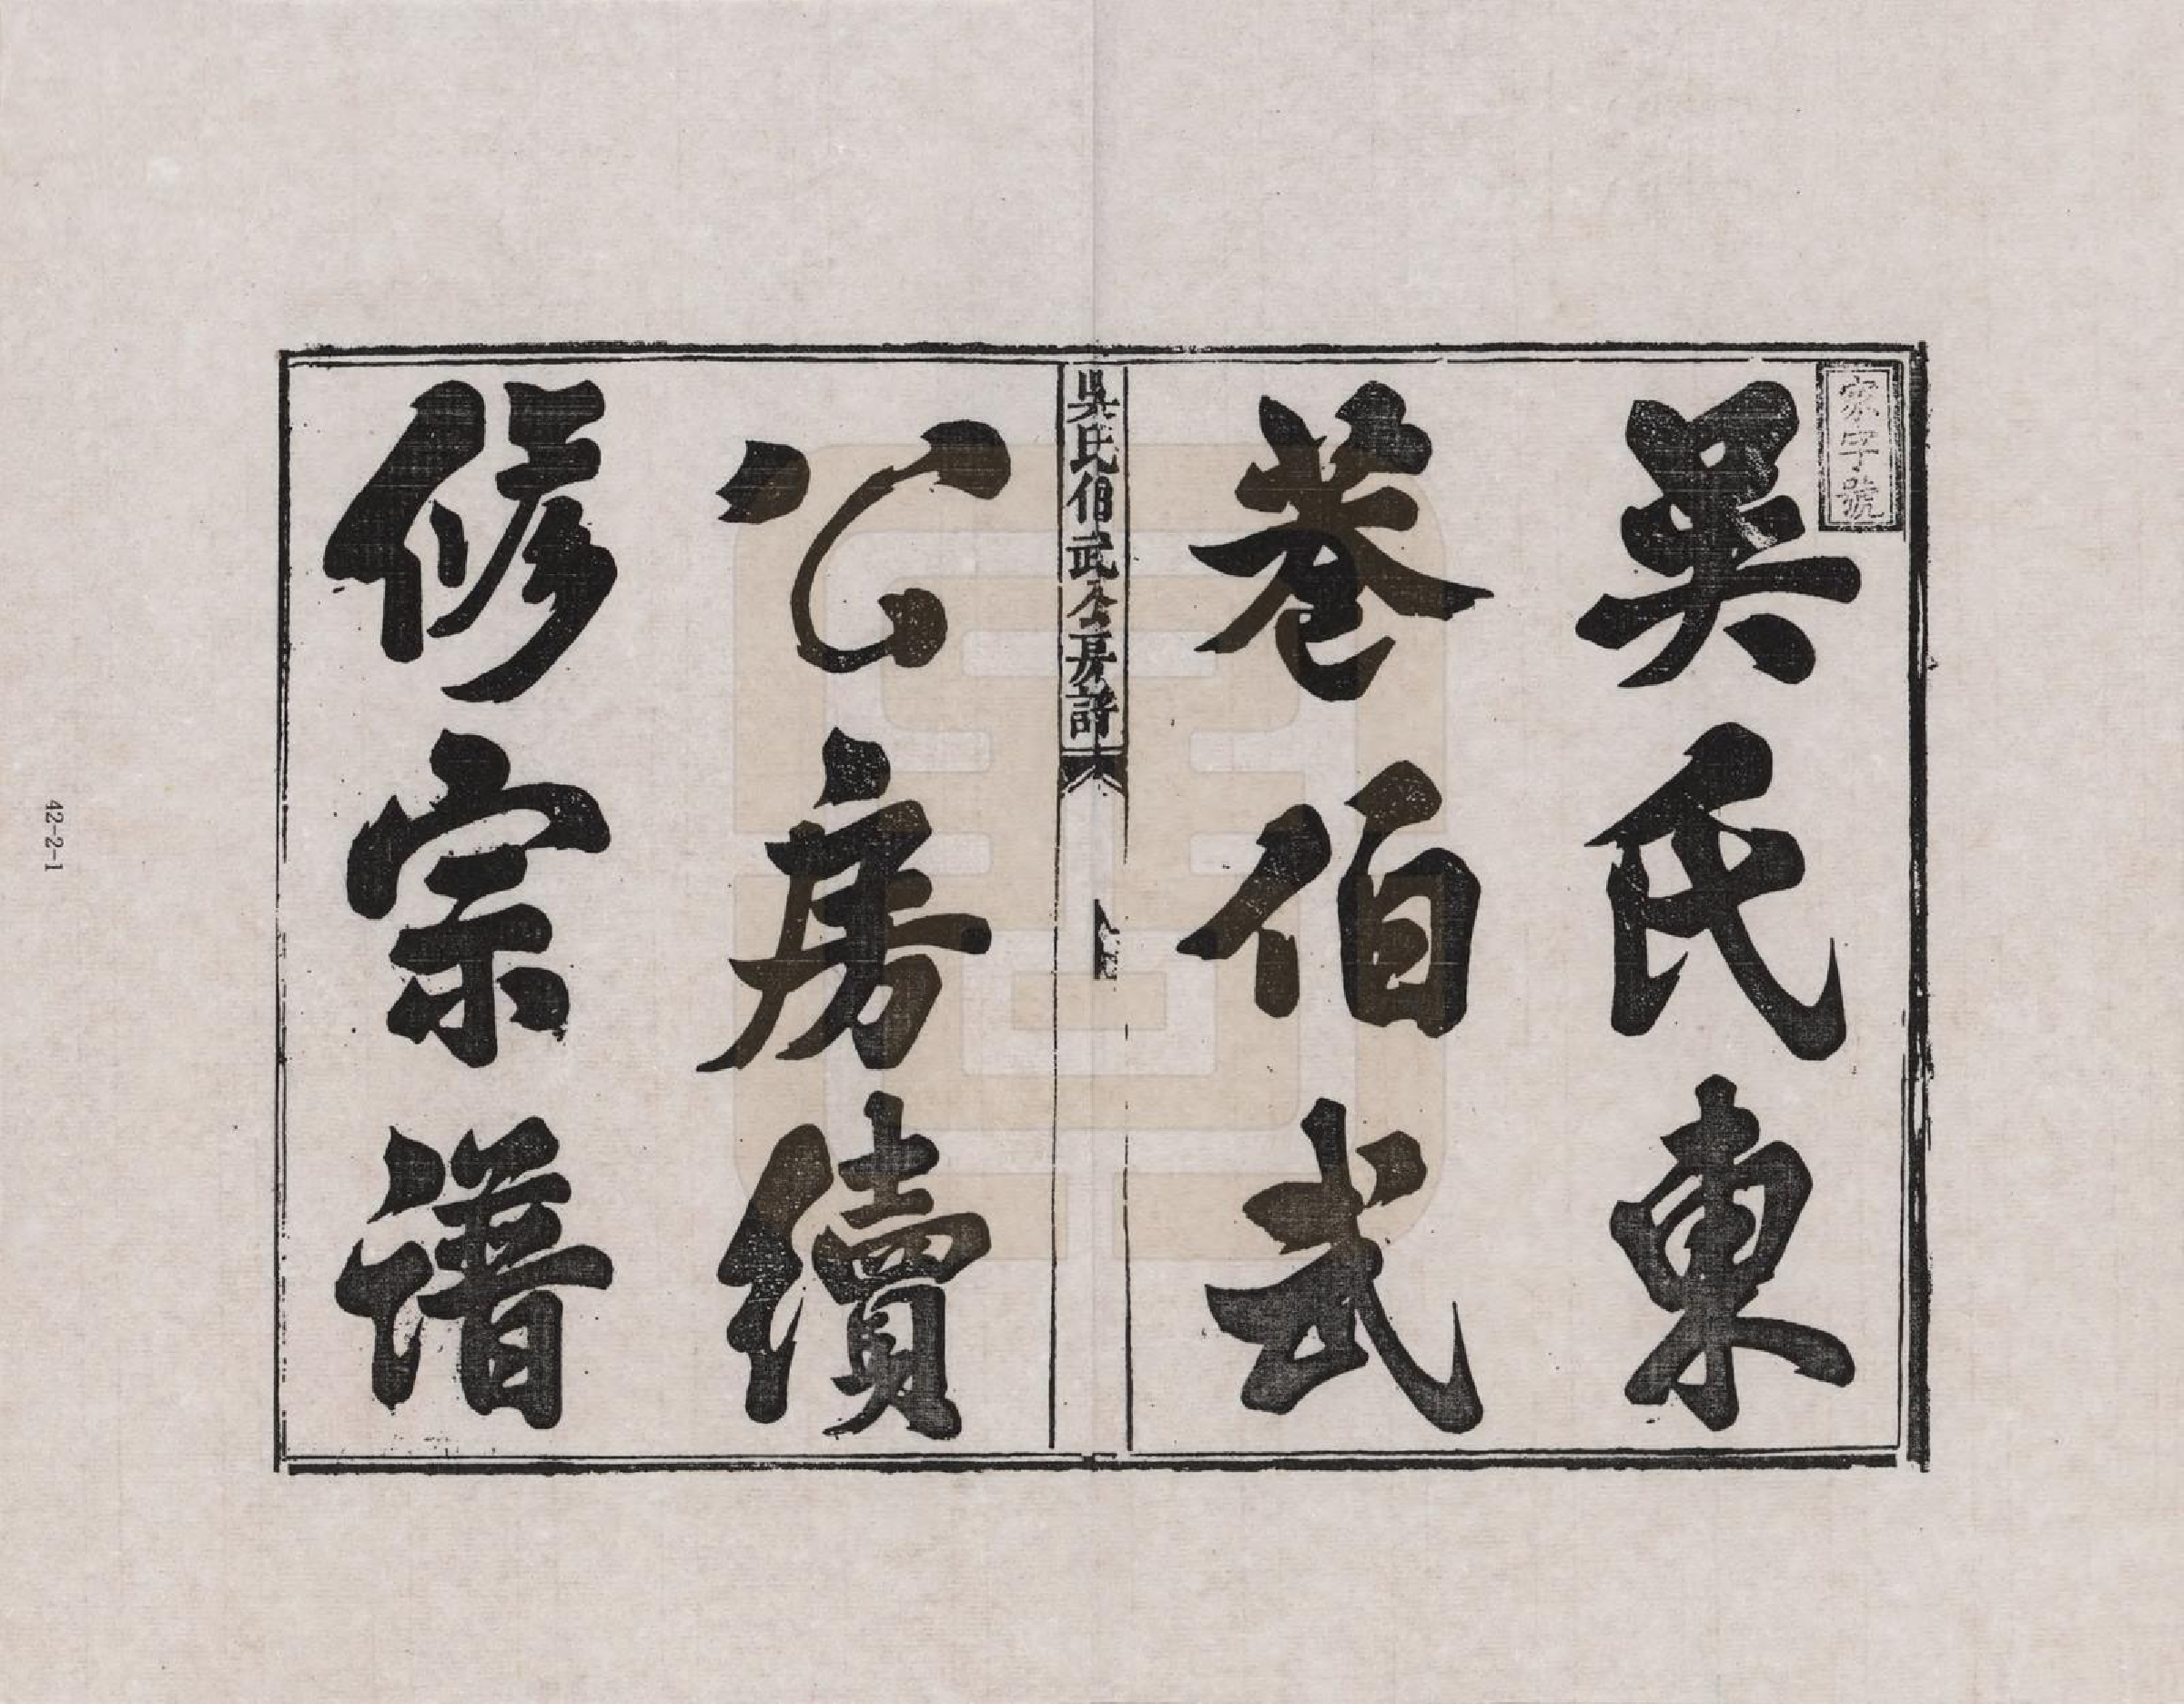 家字號
吳氏東
巷伯武
吳氏伯武公房譜
公房續
修宗譜
42-2-1